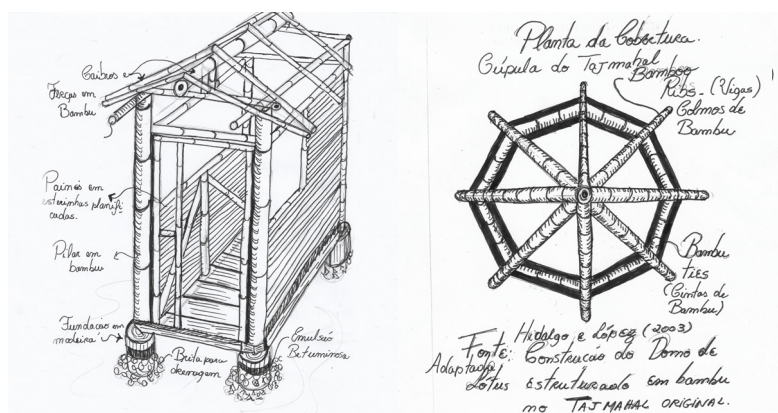 Caibros e
Terças em
Bambu
Painéis em
esterinhas planifi-
cadas.
Pilar em
bambu
Fundação em
madeira
Brita para
drenagem
Emulsão
Betuminosa
Planta da Cobertura.
Cúpula do Tajmahal
Bamboo
Ribs - (Vigas)
Colmos de
Bambu
Bambu
Ties
(Cintas de
Bambu)
Fonte: Hidalgo e López (2003)
Adaptada/ Construcao do Domo de
Lótus Estruturado em bambu
no TAJ MAHAL ORIGINAL.